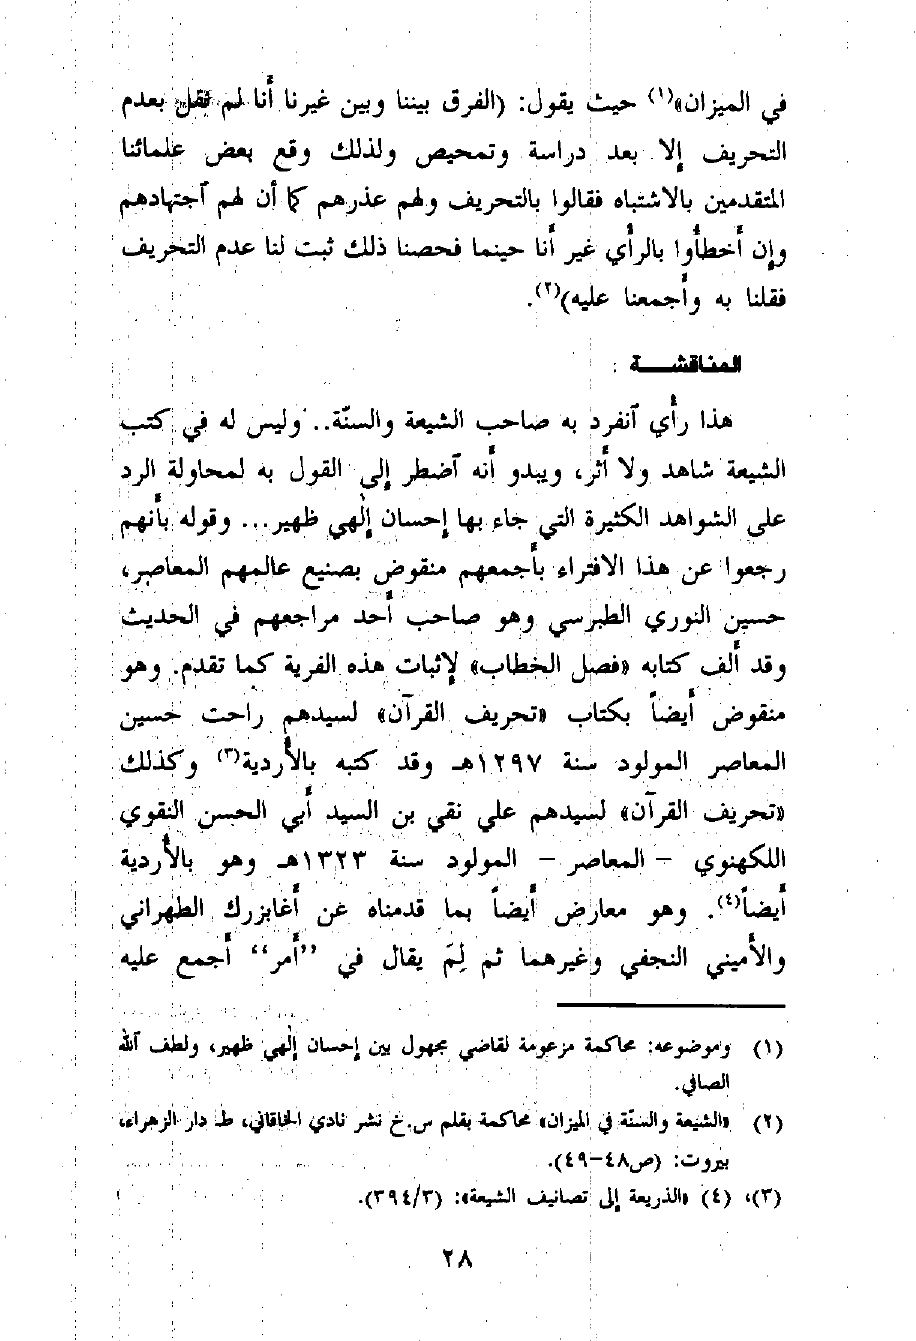 في الميزان»(١) حيث يقول: (الفرق بيننا وبين غيرنا أنا لم نقل بعدم
التحريف إلا بعد دراسة وتمحيص ولذلك وقع بعض علمائنا
المتقدمين بالاشتباه فقالوا بالتحريف ولهم عذرهم كما أن لهم ٱجتهادهم
وإن أخطأوا بالرأي غير أنا حينما فحصنا ذلك ثبت لنا عدم التحريف
فقلنا به وأجمعنا عليه)(٢).
المناقشة :
هذا رأي ٱنفرد به صاحب الشيعة والسنّة.. وليس له في كتب
الشيعة شاهد ولا أثر، ويبدو أنه ٱضطر إلى القول به لمحاولة الرد
على الشواهد الكثيرة التي جاء بها إحسان إلٰهي ظهير... وقوله بأنهم
رجعوا عن هذا الافتراء بأجمعهم منقوض بصنيع عالمهم المعاصر،
حسين النوري الطبرسي وهو صاحب أحد مراجعهم في الحديث
وقد ألف كتابه «فصل الخطاب» لإثبات هذه الفرية كما تقدم. وهو
منقوض أيضاً بكتاب «تحريف القرآن» لسيدهم راحت حسين
المعاصر المولود سنة ١٢٩٧هـ وقد كتبه بالأردية(٣) وكذلك
«تحريف القرآن» لسيدهم علي نقي بن السيد أبي الحسن النقوي
اللكهنوي – المعاصر – المولود سنة ١٣٢٣هـ وهو بالأردية
أيضاً(٤). وهو معارض أيضاً بما قدمناه عن أغابزرك الطهراني
والأميني النجفي وغيرهما ثم لِمَ يقال في ”أمر“ أجمع عليه
(١) وموضوعه: محاكمة مزعومة لقاضي مجهول بين إحسان إلٰهي ظهير، ولطف ٱلله
الصافي.
(٢) «الشيعة والسنّة في الميزان» محاكمة بقلم س.خ نشر نادي الخاقاني، ط دار الزهراء،
بيروت: (ص٤٨–٤٩).
(٣)، (٤) «الذريعة إلى تصانيف الشيعة»: (٣٩٤/٣).
٢٨